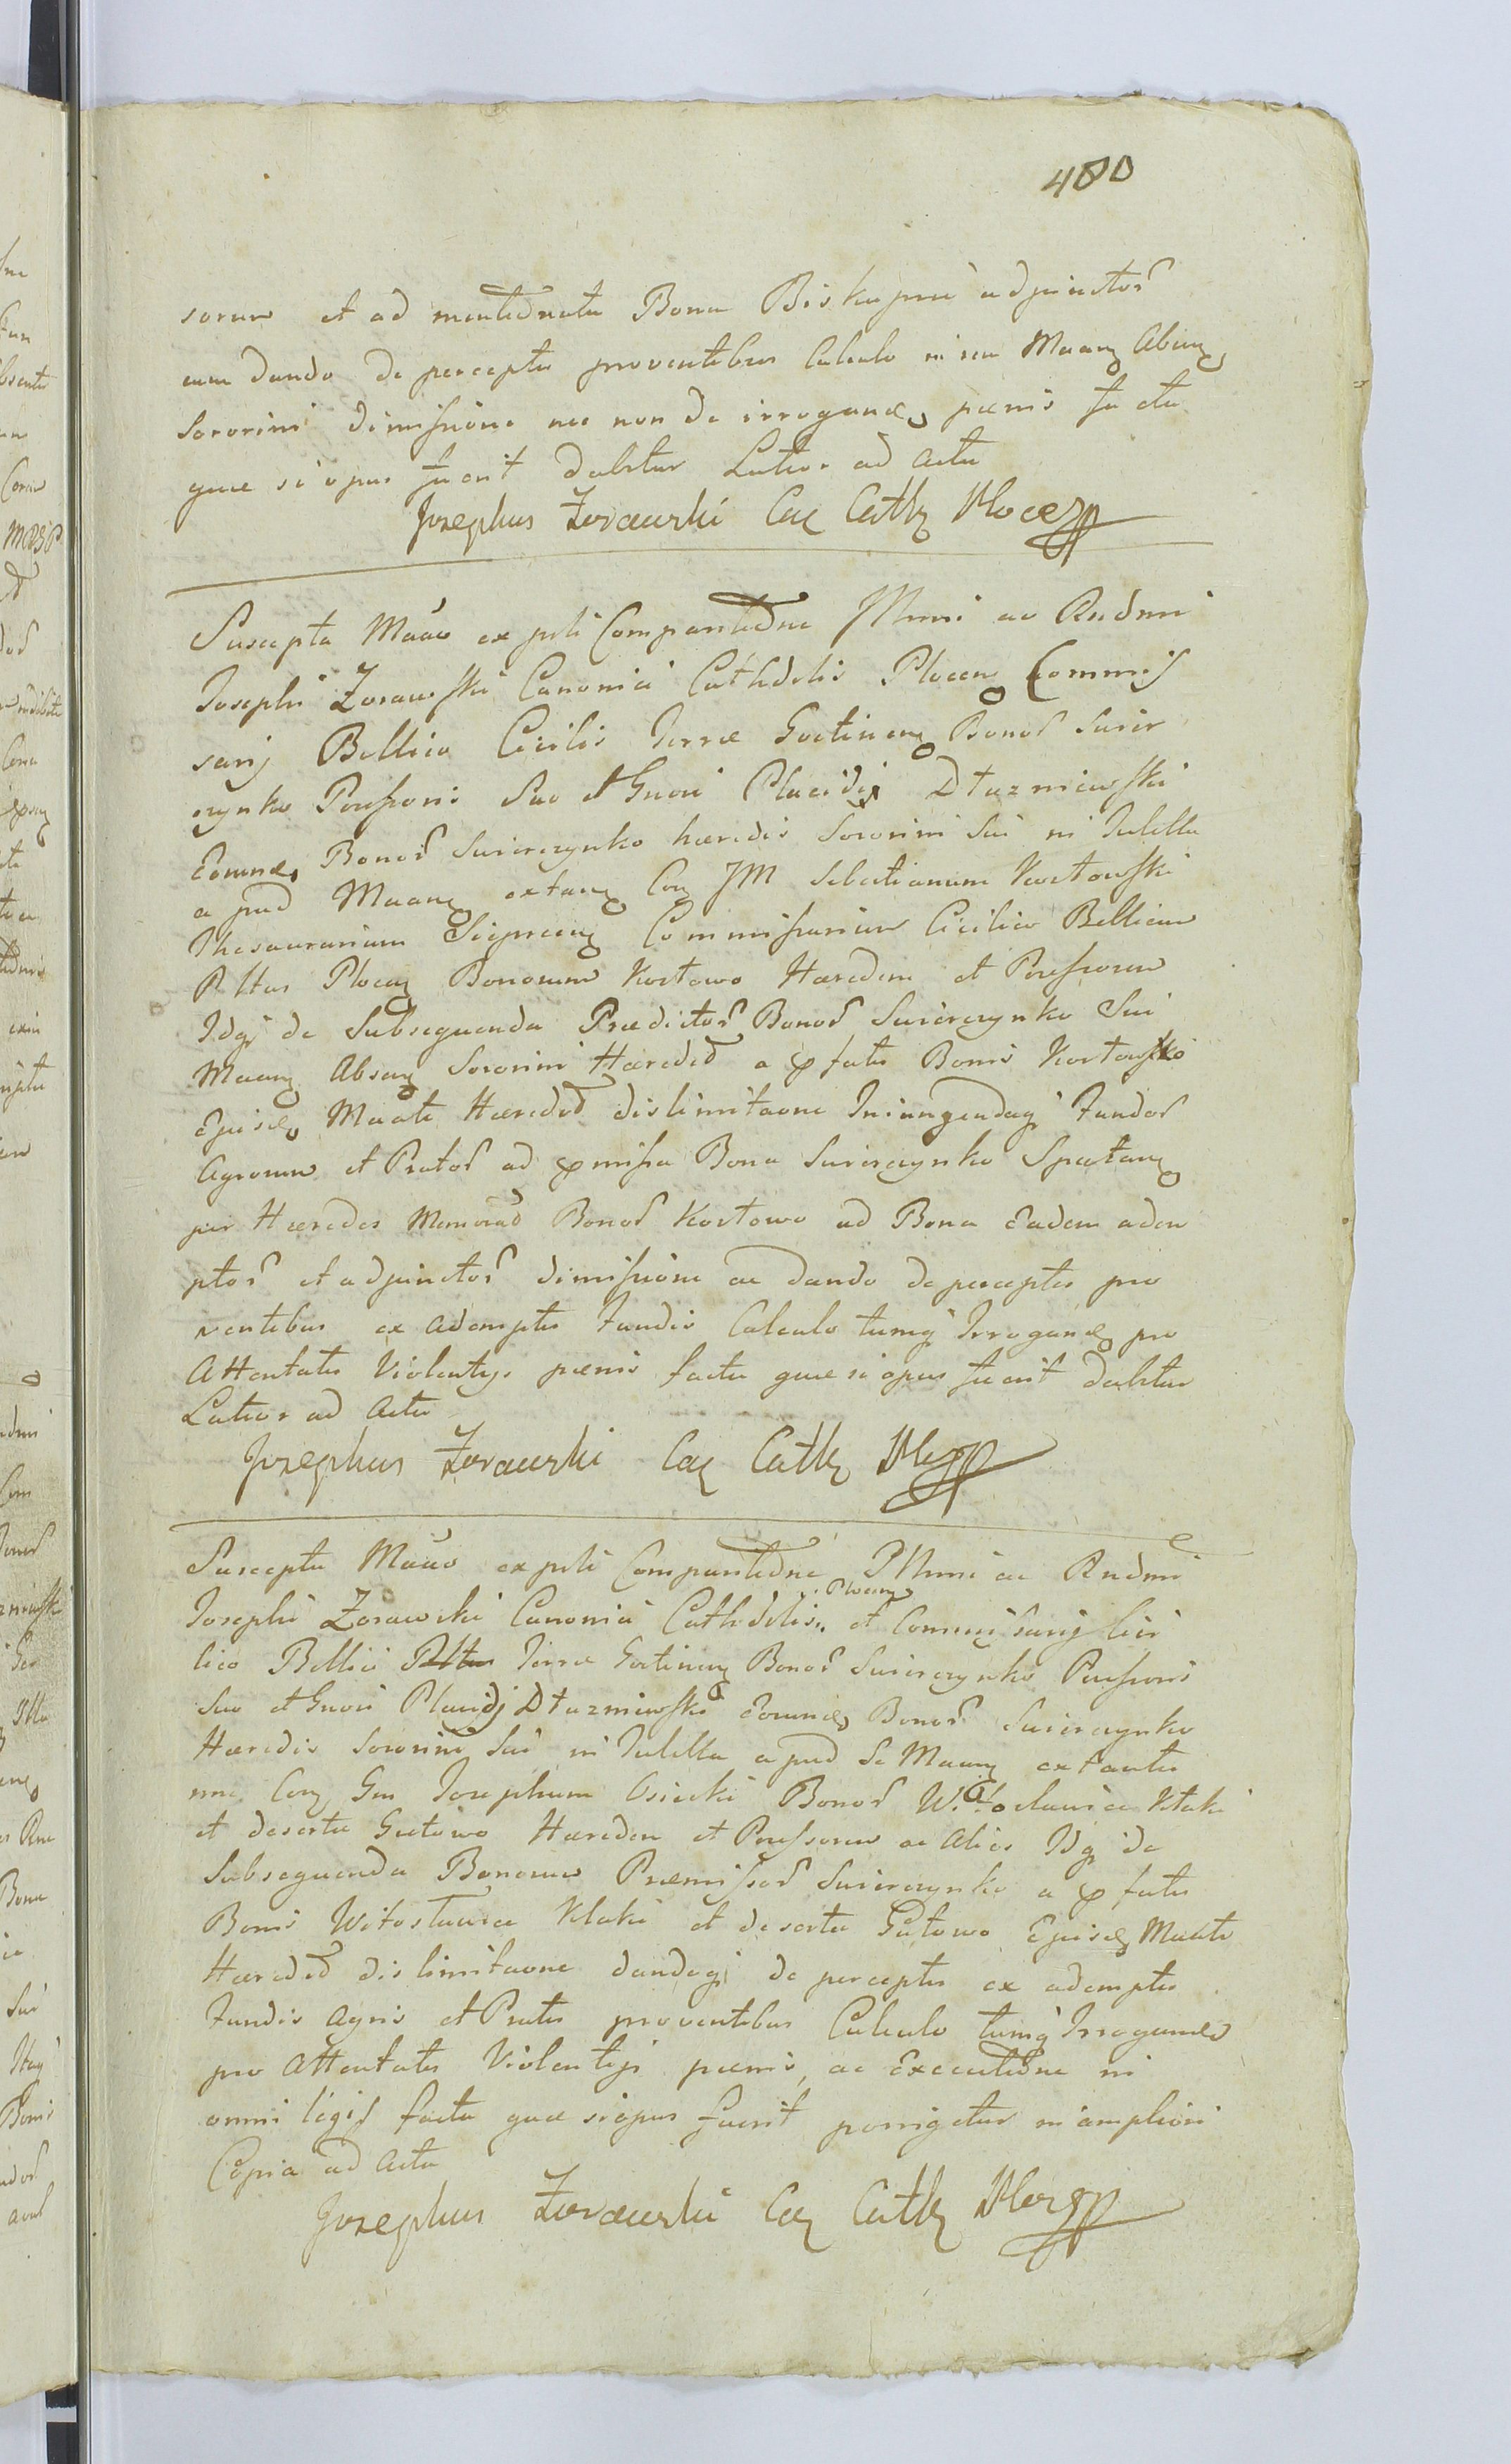 480
sorum et ad mentednata Bona Biskupice adjunctor
eum dando de perceptis proventibus Calculo in rem Maang Absenz
Sororini dimissione nec non de irrogand poenis facta
quae si opus fuerit dabitur Latior ad Acta
Josephus Zorawski Can Cathz Plocen
Suscepta Maao ex parti Comparitione Illmi ac Rndmi
Josephi Zorawski Canonici Cathdrlis Plocen Commis
sarij Bellico Civilis Terrae Gostinenz Bonor Swier
czynko Possessoris Suo et Gnosi Placidi Dłuzniewski
Eorund Bonor Swierczynko haeredis Sororini Sui in Tutella
apud Maanz extanz Con JM Sebastianum Kostowski
Thesaurarium Sieprcenz Commissarium Civilico Bellicum
Pltus Plocenz Bonorum Kostowo Haeredem et Possessorem
Idq de Subsequenda Praedictor Bonor Swierczynko Sui
Maanz Absenz Sororini Haeredit a pfatis Bonis Kostowsko
Ejusd Maate Haeredit dislimitaone Iniungendaq Fundor
Agrorum et Prator ad pmissa Bona Swierczynko Spectanz
per Haeredes Memorad Bonor Kostowo ad Bona Eadem adem
ptor et adjunctor dimissione ac dando de perceptis pro
ventibus ex ademptis Fundis Calculo tumq Irrogand pro
Attentatis Violentijs poenis facta quae si opus fuerit dabitur
Latior ad Acta
Josephus Zorawski Can Cathz Plo
Suscepta Maao ex parti Comparitione Illmi ac Rndmi
Josephi Zorawski Canonici Cathdrlis Plocenz et Commissarij Civi
lico Bellici Pltus Terrae Gostinenz Bonor Swierczynko Possessoris
Suo et Gnosi Placidj Dłuzniewski Eorund Bonor Swierczynko
Haeredis Sororini Sui in Tutella apud Se Maanz extantis
nne Con Gm Josephum Osiecki Bonor Witoslawice Kłaki
et deserta Gutowo Haeredem et Possessorem ac Alios Idq de
Subsequenda Bonorum Praemissor Swierczynko a pfatis
Bonis Witosławice Kłaki et deserta Gutowo Ejusd Maate
Haeredit dislimitaone dandoq de perceptis ex ademptis
Fundis Agris et Pratis proventibus Calculo tumq Irrogand
pro Attentatis Violentijs poenis, ac Executione in
omni legis facta quae si opus fuerit porrigetur in ampliori
Copia ad Acta
Josephus Zorawski Can Cathz Plocz